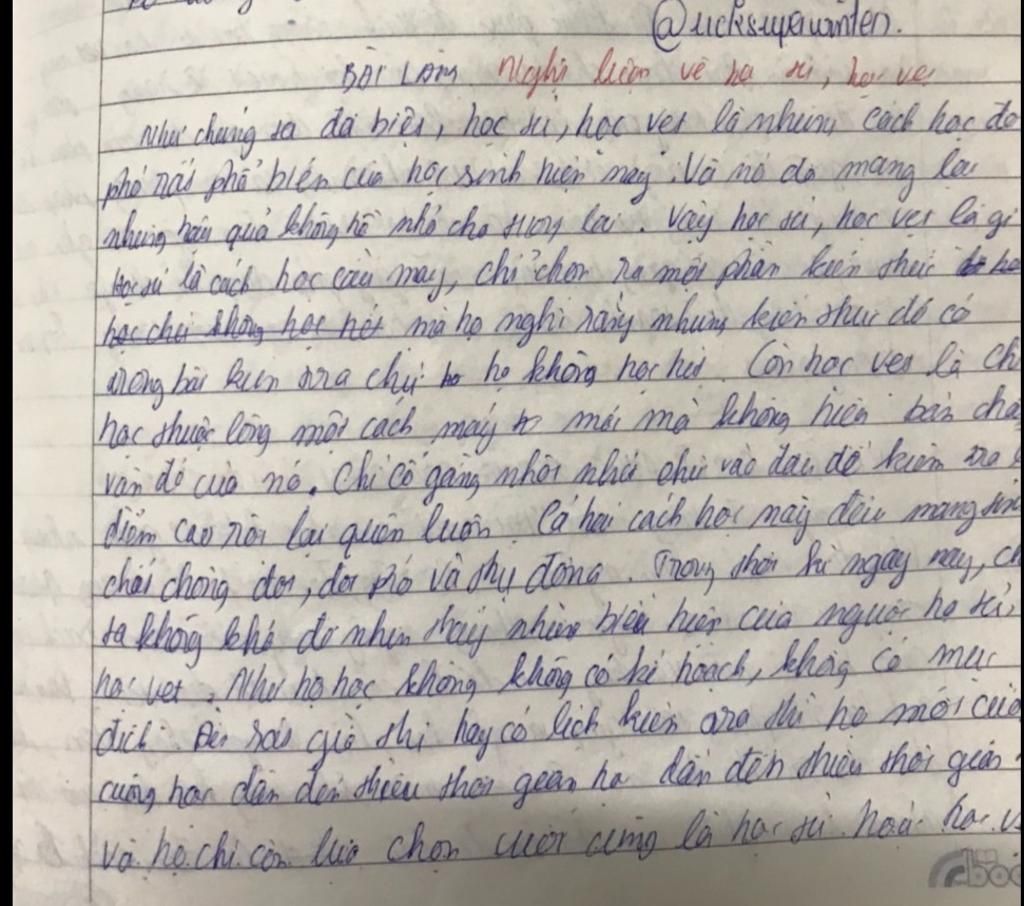 BÀI LÀM Nghị luận về học tủ, học vẹt
Như chúng ta đã biết, học tủ, học vẹt là những cách học đối
phó rất phổ biến của học sinh hiện nay. Và nó đã mang lại
những hậu quả không hề nhỏ cho tương lai. Vậy học tủ, học vẹt là gì
Học tủ là cách học cầu may, chỉ chọn ra một phần kiến thức
học chứ không học hết mà họ nghĩ rằng những kiến thức đó có
trong bài kiểm tra chứ họ không học hết. Còn học vẹt là chỉ
học thuộc lòng một cách máy móc mà không hiểu bản chất
vấn đề của nó. Chỉ cố gắng nhồi nhét chữ vào đầu để kiểm tra
điểm cao rồi lại quên luôn. Cả hai cách học này đều mang tính
chất chống đối, đối phó và thụ động. Trong thời kì ngày nay,
ta không khó để nhìn thấy những biểu hiện của người học tủ,
học vẹt. Như họ học không không có kế hoạch, không có mục
đích. Đến sát giờ thi hay có lịch kiểm tra thì họ mới cuống
cuồng học dẫn đến thiếu thời gian họ dẫn đến thiếu thời gian
và họ chỉ còn lựa chọn cuối cùng là học tủ hoặc học